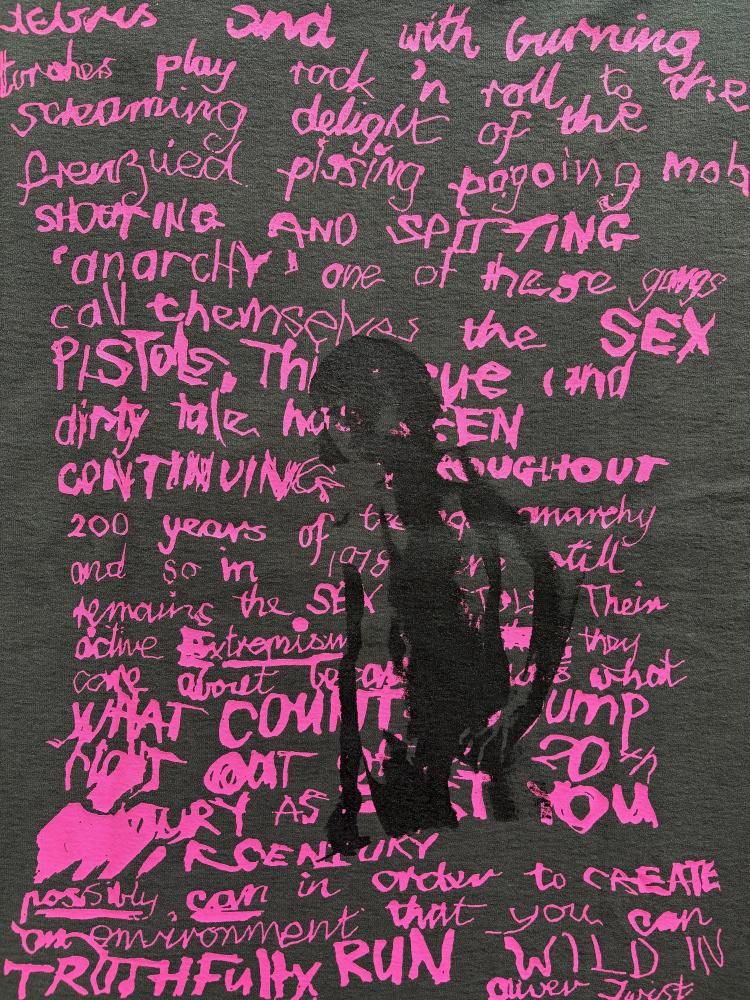 and with burning
torches play rock 'n roll to the
screaming delight of the
frenzied pissing pogoing mob
SHOOTING AND SPITTING
'anarchy' one of these gangs
call themselves the SEX
PISTOLS, This true and
dirty tale has BEEN
CONTINUING THROUGHOUT
200 years of teenage anarchy
and so in 1978 there still
remains the SEX PISTOLS Their
active Extremism they
care about because what
WHAT COUNTS JUMP
OUT OF 20th
AS FAST YOU
CENTURY
possibly can in order to CREATE
an environment that you can
TRUTHFULLY RUN WILD IN
Oliver Twist